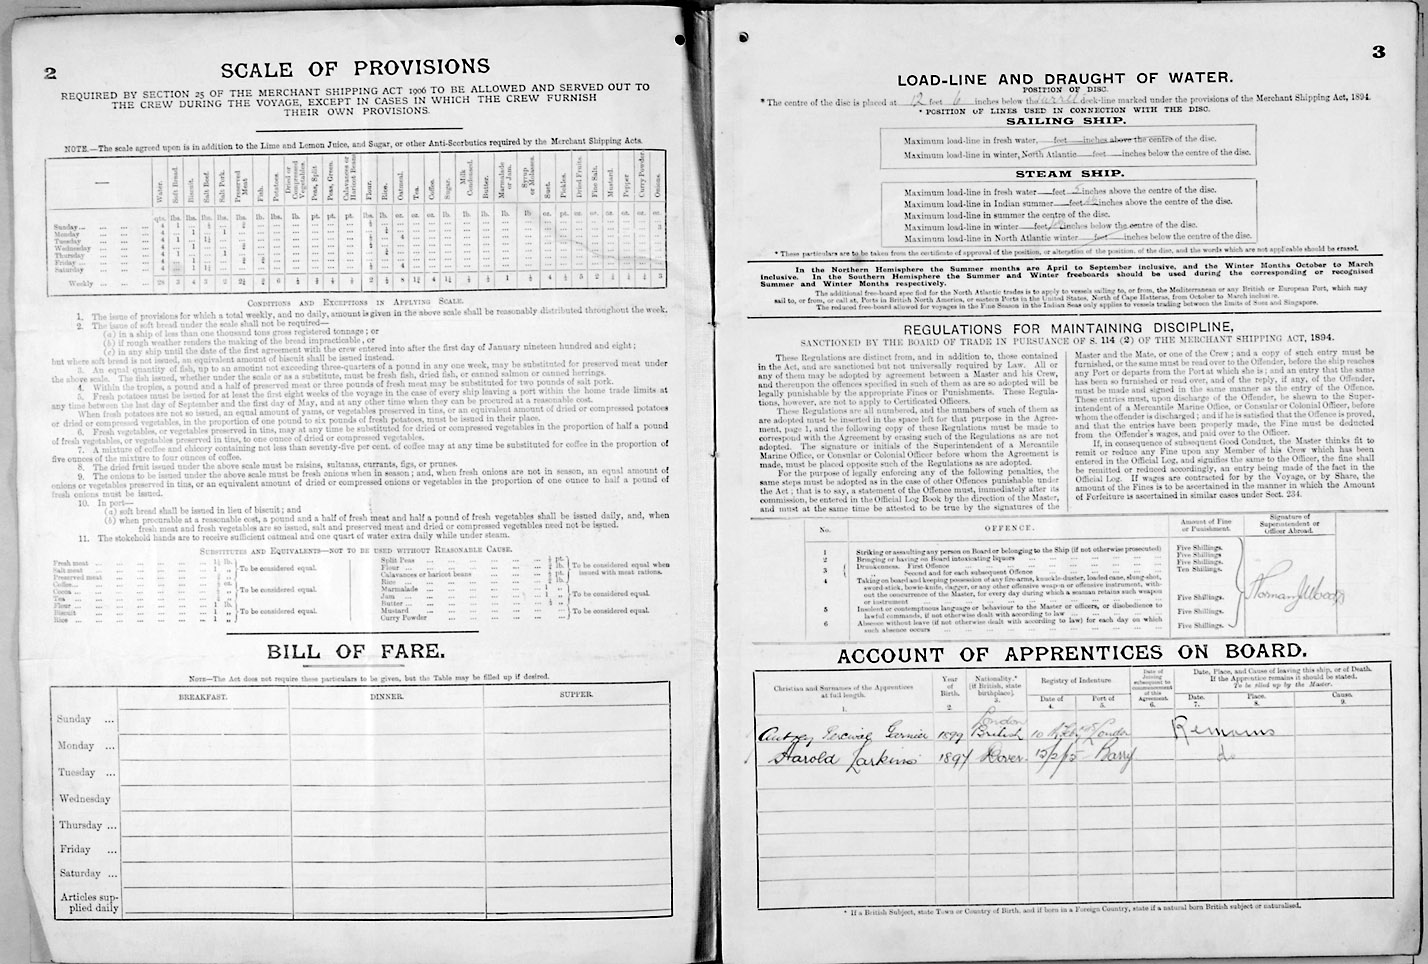 2
SCALE OF PROVISIONS
REQUIRED BY SECTION 25 OF THE MERCHANT SHIPPING ACT 1906 TO BE ALLOWED AND SERVED OUT TO
THE CREW DURING THE VOYAGE, EXCEPT IN CASES IN WHICH THE CREW FURNISH
THEIR OWN PROVISIONS.
NOTE.—The scale agreed upon is in addition to the Lime and Lemon Juice, and Sugar, or other Anti-Scorbutics required by the Merchant Shipping Acts.
— Water. Soft Bread. Biscuit. Salt Beef. Salt Pork. Preserved Meat Flour. Fish. Potatoes. Dried or Compressed Vegetables. Peas, Split Peas, Green. Calavances or Haricot Beans Flour. Rice. Oatmeal. Tea. Coffee. Sugar. Milk Condensed. Butter. Marmalade or Jam. Syrup or Molasses. Suet. Pickles. Dried Fruits. Fine Salt. Mustard. Pepper Curry Powder. Onions.
Sunday
Monday
Tuesday
Wednesday
Thursday
Friday
Saturday
Weekly
CONDITIONS AND EXCEPTIONS IN APPLYING SCALE.
1. The issue of provisions for which a total weekly, and no daily, amount is given in the above scale shall be reasonably distributed throughout the week.
2. The issue of soft bread under the scale shall not be required—
(a) in a ship of less than one thousand tons gross registered tonnage; or
(b) if rough weather renders the making of the bread impracticable, or
(c) in any ship until the date of the first agreement with the crew entered into after the first day of January nineteen hundred and eight;
but where soft bread is not issued, an equivalent amount of biscuit shall be issued instead.
3. An equal quantity of fish, up to an amount not exceeding three-quarters of a pound in any one week, may be substituted for preserved meat under
the above scale. The fish issued, whether under the scale or as a substitute, must be fresh fish, dried fish, or canned salmon or canned herrings.
4. Within the tropics, a pound and a half of preserved meat or three pounds of fresh meat may be substituted for two pounds of salt pork.
5. Fresh potatoes must be issued for at least the first eight weeks of the voyage in the case of every ship leaving a port within the home trade limits at
any time between the last day of September and the first day of May, and at any other time when they can be procured at a reasonable cost.
When fresh potatoes are not so issued, an equal amount of yams, or vegetables preserved in tins, or an equivalent amount of dried or compressed potatoes
or dried or compressed vegetables, in the proportion of one pound to six pounds of fresh potatoes, must be issued in their place.
6. Fresh vegetables, or vegetables preserved in tins, may at any time be substituted for dried or compressed vegetables in the proportion of half a pound
of fresh vegetables, or vegetables preserved in tins, to one ounce of dried or compressed vegetables.
7. A mixture of coffee and chicory containing not less than seventy-five per cent. of coffee may at any time be substituted for coffee in the proportion of
five ounces of the mixture to four ounces of coffee.
8. The dried fruit issued under the above scale must be raisins, sultanas, currants, figs, or prunes.
9. The onions to be issued under the above scale must be fresh onions when in season; and, when fresh onions are not in season, an equal amount of
onions or vegetables preserved in tins, or an equivalent amount of dried or compressed onions or vegetables in the proportion of one ounce to half a pound of
fresh onions must be issued.
10. In port—
(a) soft bread shall be issued in lieu of biscuit; and
(b) when procurable at a reasonable cost, a pound and a half of fresh meat and half a pound of fresh vegetables shall be issued daily, and, when
fresh meat and fresh vegetables are so issued, salt and preserved meat and dried or compressed vegetables need not be issued.
11. The stokehold hands are to receive sufficient oatmeal and one quart of water extra daily while under steam.
SUBSTITUTES AND EQUIVALENTS—NOT TO BE USED WITHOUT REASONABLE CAUSE.
Fresh meat
Salt meat To be considered equal.
Preserved meat
Coffee
Cocoa To be considered equal.
Tea
Flour
Biscuit To be considered equal.
Rice
Split Peas
Flour To be considered equal when
Calavances or haricot beans issued with meat rations.
Rice
Marmalade
Jam To be considered equal.
Butter
Mustard To be considered equal.
Curry Powder
BILL OF FARE.
NOTE—The Act does not require these particulars to be given, but the Table may be filled up if desired.
BREAKFAST. DINNER. SUPPER.
Sunday ...
Monday ...
Tuesday ...
Wednesday
Thursday ...
Friday ...
Saturday ...
Articles sup-
plied daily
3
LOAD-LINE AND DRAUGHT OF WATER.
POSITION OF DISC.
* The centre of the disc is placed at 12 feet 6 inches below the deck-line marked under the provisions of the Merchant Shipping Act, 1894.
* POSITION OF LINES USED IN CONNECTION WITH THE DISC.
SAILING SHIP.
Maximum load-line in fresh water, feet inches above the centre of the disc.
Maximum load-line in winter, North Atlantic feet inches below the centre of the disc.
STEAM SHIP.
Maximum load-line in fresh water feet inches above the centre of the disc.
Maximum load-line in Indian summer feet inches above the centre of the disc.
Maximum load-line in summer the centre of the disc.
Maximum load-line in winter feet inches below the centre of the disc.
Maximum load-line in North Atlantic winter feet inches below the centre of the disc.
* These particulars are to be taken from the certificate of approval of the position, or alteration of the position, of the disc, and the words which are not applicable should be erased.
In the Northern Hemisphere the Summer months are April to September inclusive, and the Winter Months October to March
inclusive. In the Southern Hemisphere the Summer and Winter freeboards should be used during the corresponding or recognised
Summer and Winter Months respectively.
The additional free-board specified for the North Atlantic trades is to apply to vessels sailing to, or from, the Mediterranean or any British or European Port, which may
sail to, or from, or call at, Ports in British North America, or eastern Ports in the United States, North of Cape Hatteras, from October to March inclusive.
The reduced free-board allowed for voyages in the Fine Season in the Indian Seas only applies to vessels trading between the limits of Suez and Singapore.
REGULATIONS FOR MAINTAINING DISCIPLINE,
SANCTIONED BY THE BOARD OF TRADE IN PURSUANCE OF S. 114 (2) OF THE MERCHANT SHIPPING ACT, 1894.
These Regulations are distinct from, and in addition to, those contained
in the Act, and are sanctioned but not universally required by Law. All or
any of them may be adopted by agreement between a Master and his Crew,
and thereupon the offences specified in such of them as are so adopted will be
legally punishable by the appropriate Fines or Punishments. These Regula-
tions, however, are not to apply to Certificated Officers.
These Regulations are all numbered, and the numbers of such of them as
are adopted must be inserted in the space left for that purpose in the Agree-
ment, page 1, and the following copy of these Regulations must be made to
correspond with the Agreement by erasing such of the Regulations as are not
adopted. The signature or initials of the Superintendent of a Mercantile
Marine Office, or Consular or Colonial Officer before whom the Agreement is
made, must be placed opposite such of the Regulations as are adopted.
For the purpose of legally enforcing any of the following penalties, the
same steps must be adopted as in the case of other Offences punishable under
the Act; that is to say, a statement of the Offence must, immediately after its
commission, be entered in the Official Log Book by the direction of the Master,
and must at the same time be attested to be true by the signatures of the
Master and the Mate, or one of the Crew; and a copy of such entry must be
furnished, or the same must be read over to the Offender, before the ship reaches
any Port or departs from the Port at which she is; and an entry that the same
has been so furnished or read over, and of the reply, if any, of the Offender,
must be made and signed in the same manner as the entry of the Offence.
These entries must, upon discharge of the Offender, be shewn to the Super-
intendent of a Mercantile Marine Office, or Consular or Colonial Officer, before
whom the offender is discharged; and if he be satisfied that the Offence is proved,
and that the entries have been properly made, the Fine must be deducted
from the Offender's wages, and paid over to the Officer.
If, in consequence of subsequent Good Conduct, the Master thinks fit to
remit or reduce any Fine upon any Member of his Crew which has been
entered in the Official Log, and signifies the same to the Officer, the fine shall
be remitted or reduced accordingly, an entry being made of the fact in the
Official Log. If wages are contracted for by the Voyage, or by Share, the
amount of the Fines is to be ascertained in the manner in which the Amount
of Forfeiture is ascertained in similar cases under Sect. 234.
No. OFFENCE. Amount of Fine or Punishment. Signature of Superintendent or Officer Abroad.
1 Striking or assaulting any person on Board or belonging to the Ship (if not otherwise prosecuted) Five Shillings.
2 Bringing or having on Board intoxicating liquors Five Shillings
3 Drunkenness. First Offence Five Shillings.
" Second and for each subsequent Offence Ten Shillings.
4 Taking on board and keeping possession of any fire-arms, knuckle-duster, loaded cane, slung-shot,
sword stick, bowie-knife, dagger, or any other offensive weapon or offensive instrument, with-
out the concurrence of the Master, for every day during which a seaman retains such weapon
or instrument Five Shillings.
5 Insolent or contemptuous language or behaviour to the Master or officers, or disobedience to
lawful commands, if not otherwise dealt with according to law Five Shillings.
6 Absence without leave (if not otherwise dealt with according to law) for each day on which
such absence occurs Five Shillings.
Norman J Wood
ACCOUNT OF APPRENTICES ON BOARD.
Christian and Surnames of the Apprentices at full length. Year of Birth. Nationality.* (if British, state birthplace). Registry of Indenture Date of Port of Date of Joining subsequent to commencement of this Agreement. Date, Place, and Cause of leaving this ship, or of Death. If the Apprentice remains it should be stated. To be filled up by the Master. Date. Place. Cause.
1. 2. 3. 4. 5. 6. 7. 8. 9.
London
1899 British Remains
Harold Larkins 1897 Dover Barry do
* If a British Subject, state Town or Country of Birth, and if born in a Foreign Country, state if a natural born British subject or naturalised.